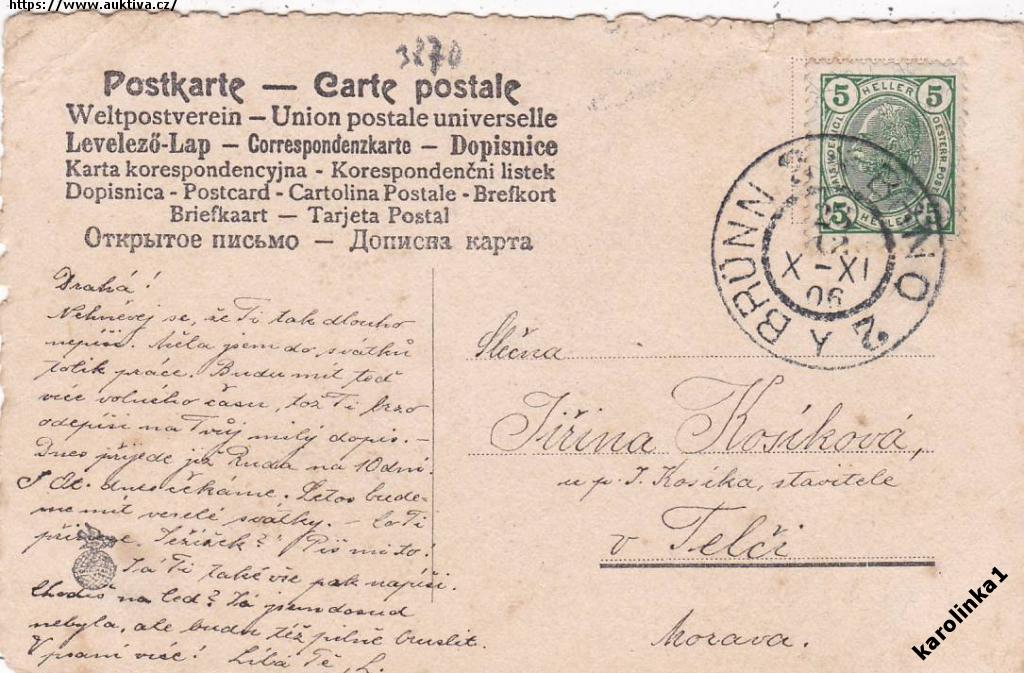 https://www.auktiva.cz/
3870
Postkarte — Carte postale
Weltpostverein – Union postale universelle
Levelező-Lap – Correspondenzkarte – Dopisnice
Karta korespondencyjna - Korespondenčni listek
Dopisnica - Postcard - Cartolina Postale - Brefkort
Briefkaart — Tarjeta Postal
Открытое письмо — Дописна карта
5 HELLER 5
OESTERR. POST
5 HELLER 5
BRÜNN 2 BRNO
X-XI
06
2 A
Drahá!
Nehněvej se, že Ti tak dlouho
nepíši. Měla jsem do svátků
tolik práce. Budu mít teď
více volného času, tož Ti brzo
odepíši na Tvůj milý dopis. –
Dnes přijede již Ruda na 10 dní.
dnes čekáme. Letos bude-
me mít veselé svátky. – Co Ti
přinese Ježíšek? Piš mi to!
Já Ti také vše pak napíši.
Chodíš na led? Já jsem dosud
nebyla, ale budu též pilně bruslit.
V psaní více! Líbá Tě, L.
Slečna
Jiřina Kosíková,
u p. J. Kosíka, stavitele
v Telči
Morava.
karolinka1